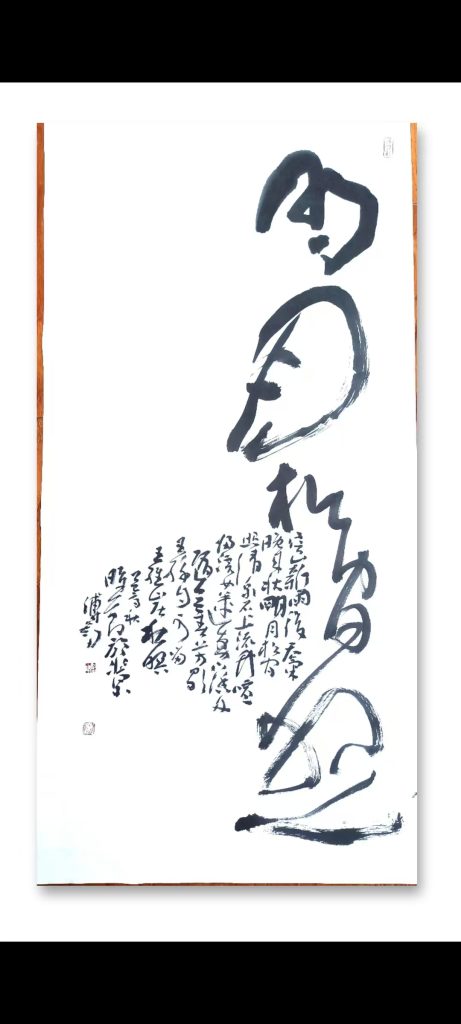 明月松間照
空山新雨後天氣
晚來秋明月松間
照清泉石上流竹喧
歸浣女蓮動下漁舟
隨意春芳歇
王孫自可留
王維山居秋暝